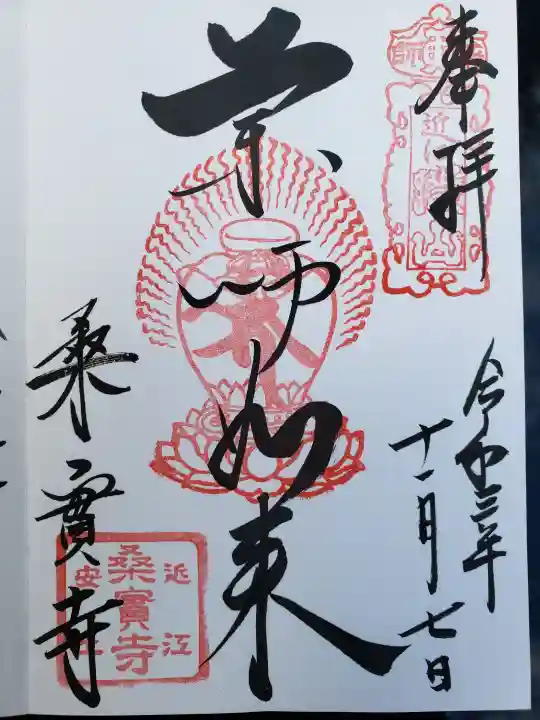 奉拝
令和三年
十一月七日
薬師如来
桑實寺
近江
桑實寺
安土